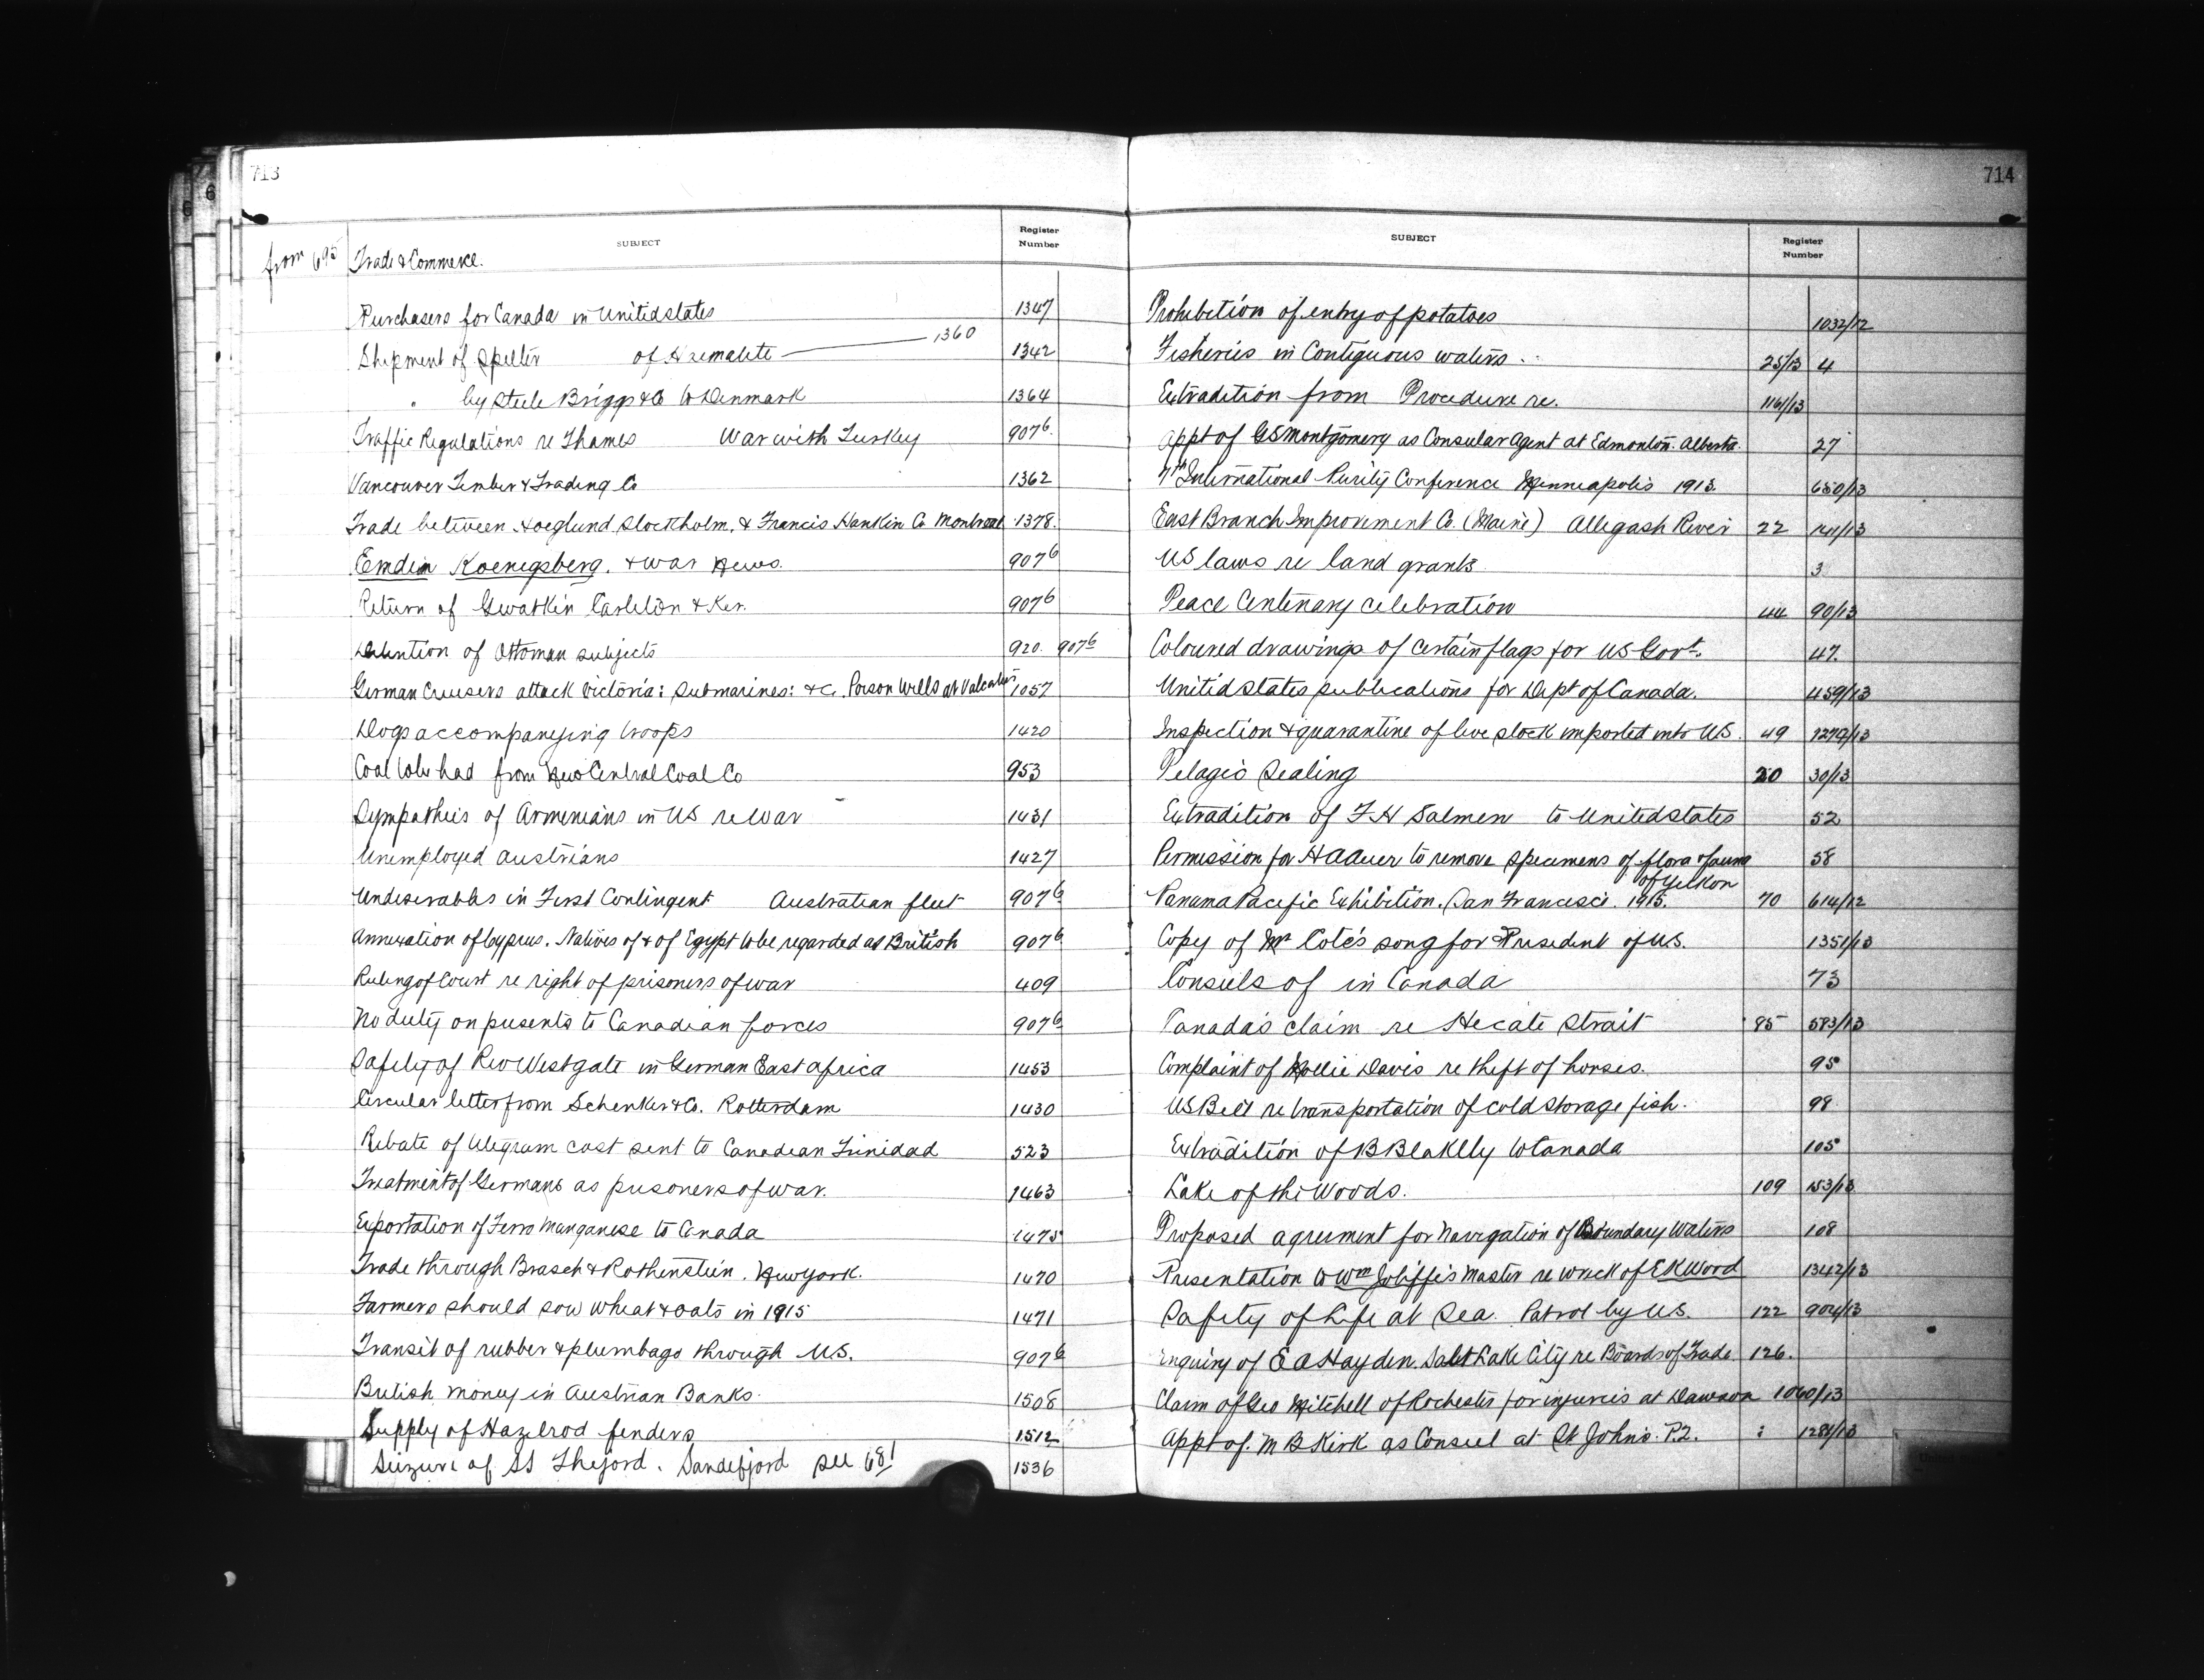 713
SUBJECT
Register Number
from 695 Trade & Commerce.
Purchasers for Canada in United States 1347
Shipment of Spelter of Haematite 1360 1342
" by Steele Briggs & Co to Denmark 1364
Traffic Regulations re Thames War with Turkey 9076
Vancouver Timber & Trading Co 1362
Trade between Hoeglund Stockholm, & Francis Hankin Co Montreal 1378.
Emden Koenigsberg. & war news. 9076
Return of Gwatkin Carleton & Ker. 9076
Detention of Ottoman subjects 920. 9076
German Cruisers attack Victoria: submarines: &c. Poison Wells at Valcatier 1057
Dogs accompanying troops 1420
Coal to be had from New Central Coal Co 953
Sympathies of Armenians in US re War 1431
Unemployed Austrians 1427
Undesirables in First Contingent Australian fleet 9076
Annexation of Cyprus. Natives of & of Egypt to be regarded as British 9076
Ruling of Court re right of prisoners of war 409
No duty on presents to Canadian forces 9076
Safety of Rev Westgate in German East Africa 1453
Circular letter from Schenker & Co. Rotterdam 1430
Rebate of telegram cost sent to Canadian Trinidad 523
Treatment of Germans as prisoners of war. 1463
Exportation of Ferro Manganese to Canada 1475
Trade through Brasch & Rothenstein. New York. 1470
Farmers should sow wheat & oats in 1915 1471
Transit of rubber & plumbago through U.S. 9076
British money in Austrian Banks. 1508
Supply of Hazelrod fenders 1512
Seizure of SS Thejord. Sandefjord see 681 1536
714
SUBJECT
Register Number
Prohibition of entry of potatoes 1032/12
Fisheries in Contiguous waters. 25/13 4
Extradition from Procedure re. 1161/13
Appt of GS Montgomery as Consular Agent at Edmonton. Alberta. 27
7th International Purity Conference Minneapolis 1913. 650/13
East Branch Improvement Co. (Maine) Allegash River 22
US laws re land grants 3
Peace Centenary celebration 44 90/13
Coloured drawings of certain flags for US Govt. 47.
United States publications for Dept of Canada. 459/13
Inspection & quarantine of live stock imported into US. 49 1279/13
Pelagic Sealing 20 30/13
Extradition of F H Salmen to United States 52
Permission for H A Auer to remove specimens of flora & fauna of Yukon 58
Panama Pacific Exhibition. San Francisco. 1915. 70 614/12
Copy of Mr Coté's song for President of U.S. 1351/13
Consuls of in Canada 73
Canada's claim re Hecate Strait 85 583/13
Complaint of Mollie Davis re theft of horses. 95
US Bill re transportation of cold storage fish. 98
Extradition of B Blaklly to Canada 105
Lake of the Woods. 109 153/13
Proposed agreement for Navigation of Boundary Waters 108
Presentation to Wm Joliffe's Master re wreck of E K Wood 1342/13
Safety of Life at Sea. Patrol by U.S. 122 904/13
Enquiry of E A Hayden. Salt Lake City re Boards of Trade 126.
Claim of Geo Mitchell of Rochester for injuries at Dawson 1060/13
Appt of. M B Kirk as Consul at St Johns. P.Q. 1281/13